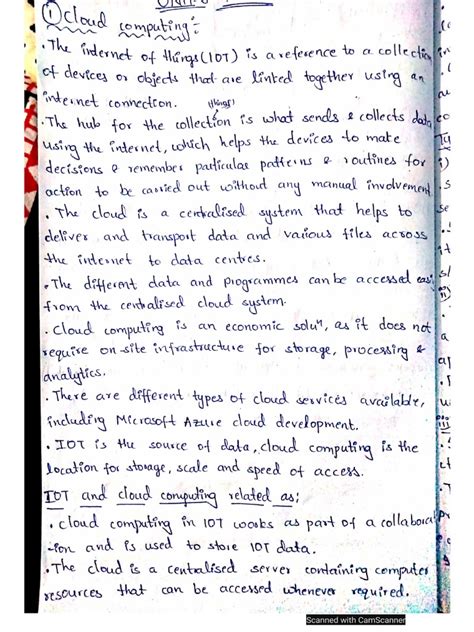 ① Cloud computing :-
• The internet of things (IOT) is a reference to a collection
of devices or objects that are linked together using an
internet connection.
(things)
• The hub for the collection is what sends & collects data
using the internet, which helps the devices to make
decisions & remember particular patterns & routines for
action to be carried out without any manual involvement.
• The cloud is a centralised system that helps to
deliver and transport data and various files across
the internet to data centres.
• The different data and programmes can be accessed easi
from the centralised cloud system.
• Cloud computing is an economic soluⁿ, as it does not
require on-site infrastructure for storage, processing &
analytics.
• There are different types of cloud services available,
including Microsoft Azure cloud development.
• IOT is the source of data, cloud computing is the
location for storage, scale and speed of access.
IOT and cloud computing related as:
• Cloud computing in IOT works as part of a collabora
-ion and is used to store IOT data.
• The cloud is a centralised server containing computer
resources that can be accessed whenever required.
Scanned with CamScanner